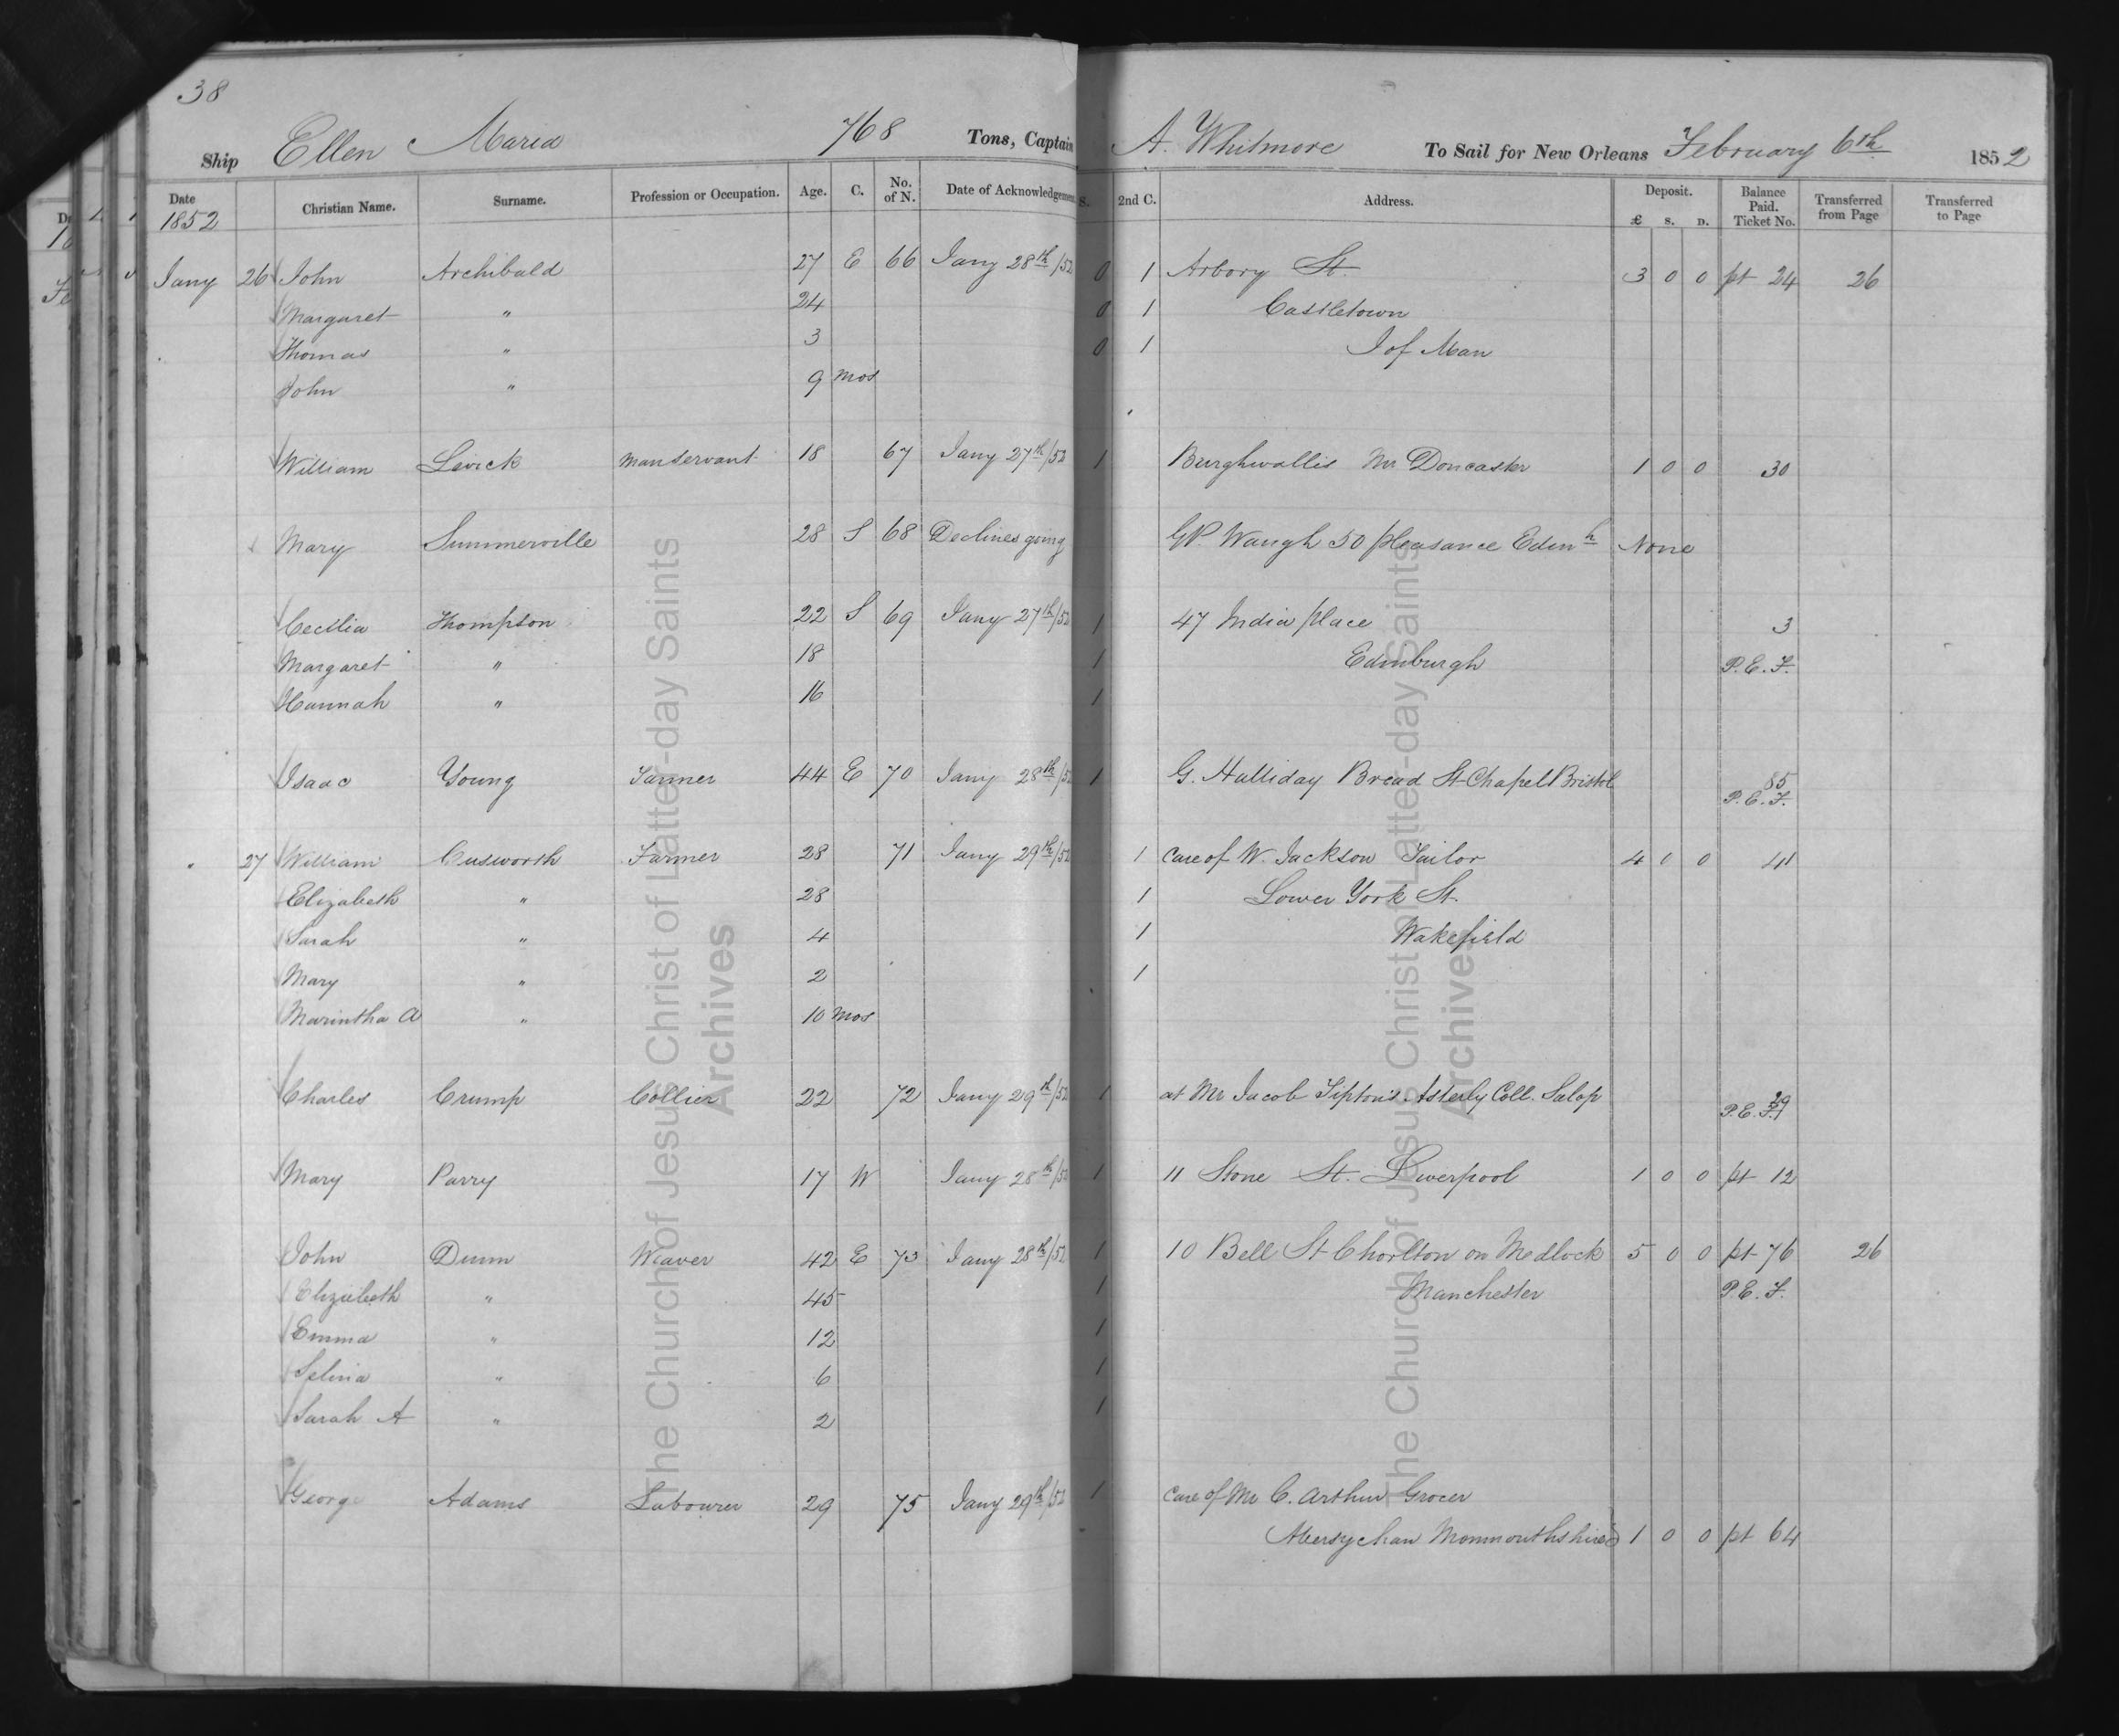 38
Ship Ellen Maria 768 Tons, Captain A. Whitmore To Sail for New Orleans February 6th 1852
Date 1852 Christian Name. Surname. Profession or Occupation. Age. C. No. of N. Date of Acknowledgement S. 2nd C. Address. Deposit. £ s. D. Balance Paid. Ticket No. Transferred from Page Transferred to Page
Jany 26 John Archibald 27 E 66 Jany 28th/52 0 1 Arbory St. 3 0 0 pt 24 26
Margaret " 24 0 1 Castletown
Thomas " 3 0 1 I of Man
John " 9 mos
William Levick Manservant 18 67 Jany 27th/52 1 Burghwallis Nr Doncaster 1 0 0 30
Mary Summerville 28 S 68 Declines going G.P. Waugh 50 pleasance Edinh None
Cecilia Thompson 22 S 69 Jany 27th/52 1 47 India place 3
Margaret " 18 1 Edinburgh P.E.F.
Hannah " 16 1
Isaac Young Farmer 44 E 70 Jany 28th/52 1 G. Halliday Bread St Chapel Bristol 85 P.E.F.
" 27 William Cusworth Farmer 28 71 Jany 29th/52 1 care of W. Jackson Tailor 4 0 0 41
Elizabeth " 28 1 Lower York St.
Sarah " 4 1 Wakefield
Mary " 2 1
Marintha A " 10 mos
Charles Crump Collier 22 72 Jany 29th/52 1 at Mr Jacob Tipton's Asterly Coll. Salop 29 P.E.F.
Mary Parry 17 W Jany 28th/52 1 11 Stone St. Liverpool 1 0 0 pt 12
John Dunn Weaver 42 E 73 Jany 28th/52 1 10 Bell St Chorlton on Medlock 5 0 0 pt 76 26
Elizabeth " 45 1 Manchester P.E.F.
Emma " 12 1
Selina " 6 1
Sarah A " 2 1
George Adams Labourer 29 75 Jany 29th/52 1 care of Mr C. Arthur Grocer
Abersychan Monmouthshire 1 0 0 pt 64
The Church of Jesus Christ of Latter-day Saints
Archives
The Church of Jesus Christ of Latter-day Saints
Archives